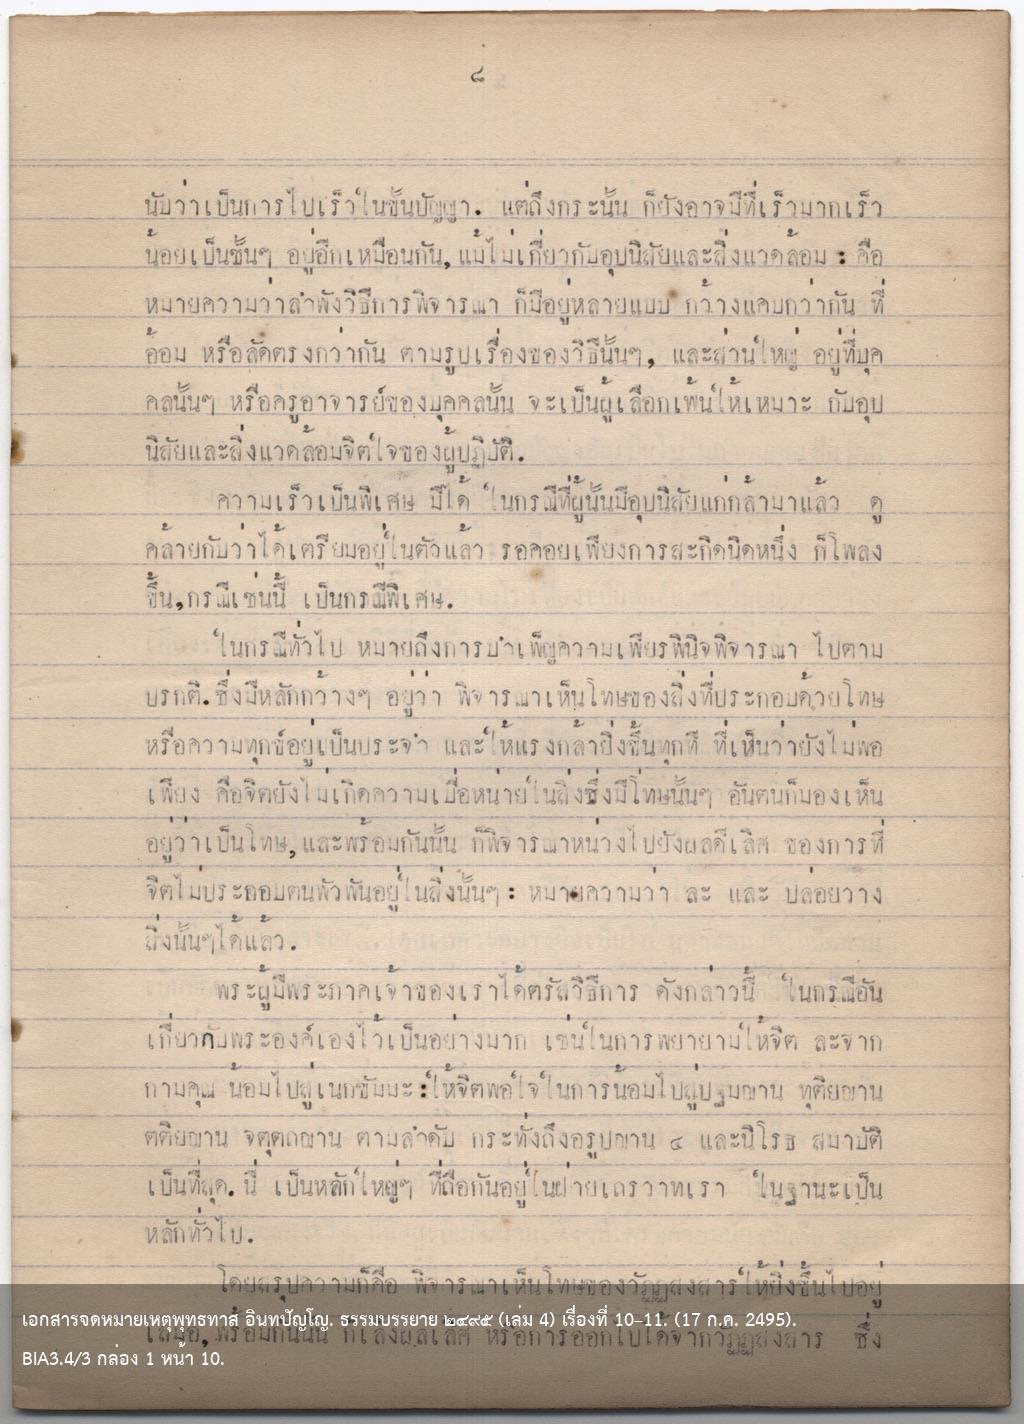 ๘
นับว่าเป็นการไปเร็วในขั้นปัญญา. แต่ถึงกระนั้น ก็ยังอาจมีที่เร็วมากเร็ว
น้อยเป็นชั้นๆ อยู่อีกเหมือนกัน, แม้ไม่เกี่ยวกับอุปนิสัยและสิ่งแวดล้อม : คือ
หมายความว่าลำพังวิธีการพิจารณา ก็มีอยู่หลายแบบ กว้างแคบกว่ากัน ที่
อ้อม หรือลัดตรงกว่ากัน ตามรูปเรื่องของวิธีนั้นๆ, และส่วนใหญ่ อยู่ที่บุค
คลนั้นๆ หรือครูอาจารย์ของบุคคลนั้น จะเป็นผู้เลือกเฟ้นให้เหมาะ กับอุป
นิสัยและสิ่งแวดล้อมจิตใจของผู้ปฏิบัติ.
ความเร็วเป็นพิเศษ มีได้ ในกรณีที่ผู้นั้นมีอุปนิสัยแก่กล้ามาแล้ว ดู
คล้ายกับว่าได้เตรียมอยู่ในตัวแล้ว รอคอยเพียงการสะกิดนิดหนึ่ง ก็โพลง
ขึ้น,กรณีเช่นนี้ เป็นกรณีพิเศษ.
ในกรณีทั่วไป หมายถึงการบำเพ็ญความเพียรพินิจพิจารณา ไปตาม
ปรกติ.ซึ่งมีหลักกว้างๆ อยู่ว่า พิจารณาเห็นโทษของสิ่งที่ประกอบด้วยโทษ
หรือความทุกข์อยู่เป็นประจำ และให้แรงกล้ายิ่งขึ้นทุกที ที่เห็นว่ายังไม่พอ
เพียง คือจิตยังไม่เกิดความเบื่อหน่ายในสิ่งซึ่งมีโทษนั้นๆ อันตนก็มองเห็น
อยู่ว่าเป็นโทษ, และพร้อมกันนั้น ก็พิจารณาหน่วงไปยังผลดีเลิศ ของการที่
จิตไม่ประกอบตนพัวพันอยู่ในสิ่งนั้นๆ : หมายความว่า ละ และ ปล่อยวาง
สิ่งนั้นๆได้แล้ว.
พระผู้มีพระภาคเจ้าของเราได้ตรัสวิธีการ ดังกล่าวนี้ ในกรณีอัน
เกี่ยวกับพระองค์เองไว้เป็นอย่างมาก เช่นในการพยายามให้จิต ละจาก
กามคุณ น้อมไปสู่เนกขัมมะ :ให้จิตพอใจในการน้อมไปสู่ปฐมฌาน ทุติยฌาน
ตติยฌาน จตุตถฌาน ตามลำดับ กระทั่งถึงอรูปฌาน ๔ และนิโรธ สมาบัติ
เป็นที่สุด. นี่ เป็นหลักใหญ่ๆ ที่ถือกันอยู่ในฝ่ายเถรวาทเรา ในฐานะเป็น
หลักทั่วไป.
โดยสรุปความก็คือ พิจารณาเห็นโทษของวัฏฏสงสารให้ยิ่งขึ้นไปอยู่
เสมอ, พร้อมกันนั้น ก็เล็งผลเลิศ หรือการออกไปได้จากวัฏฏสงสาร ซึ่ง
เอกสารจดหมายเหตุพุทธทาส อินทปัญโญ. ธรรมบรรยาย ๒๔๙๕ (เล่ม 4) เรื่องที่ 10-11. (17 ก.ค. 2495).
BIA3.4/3 กล่อง 1 หน้า 10.